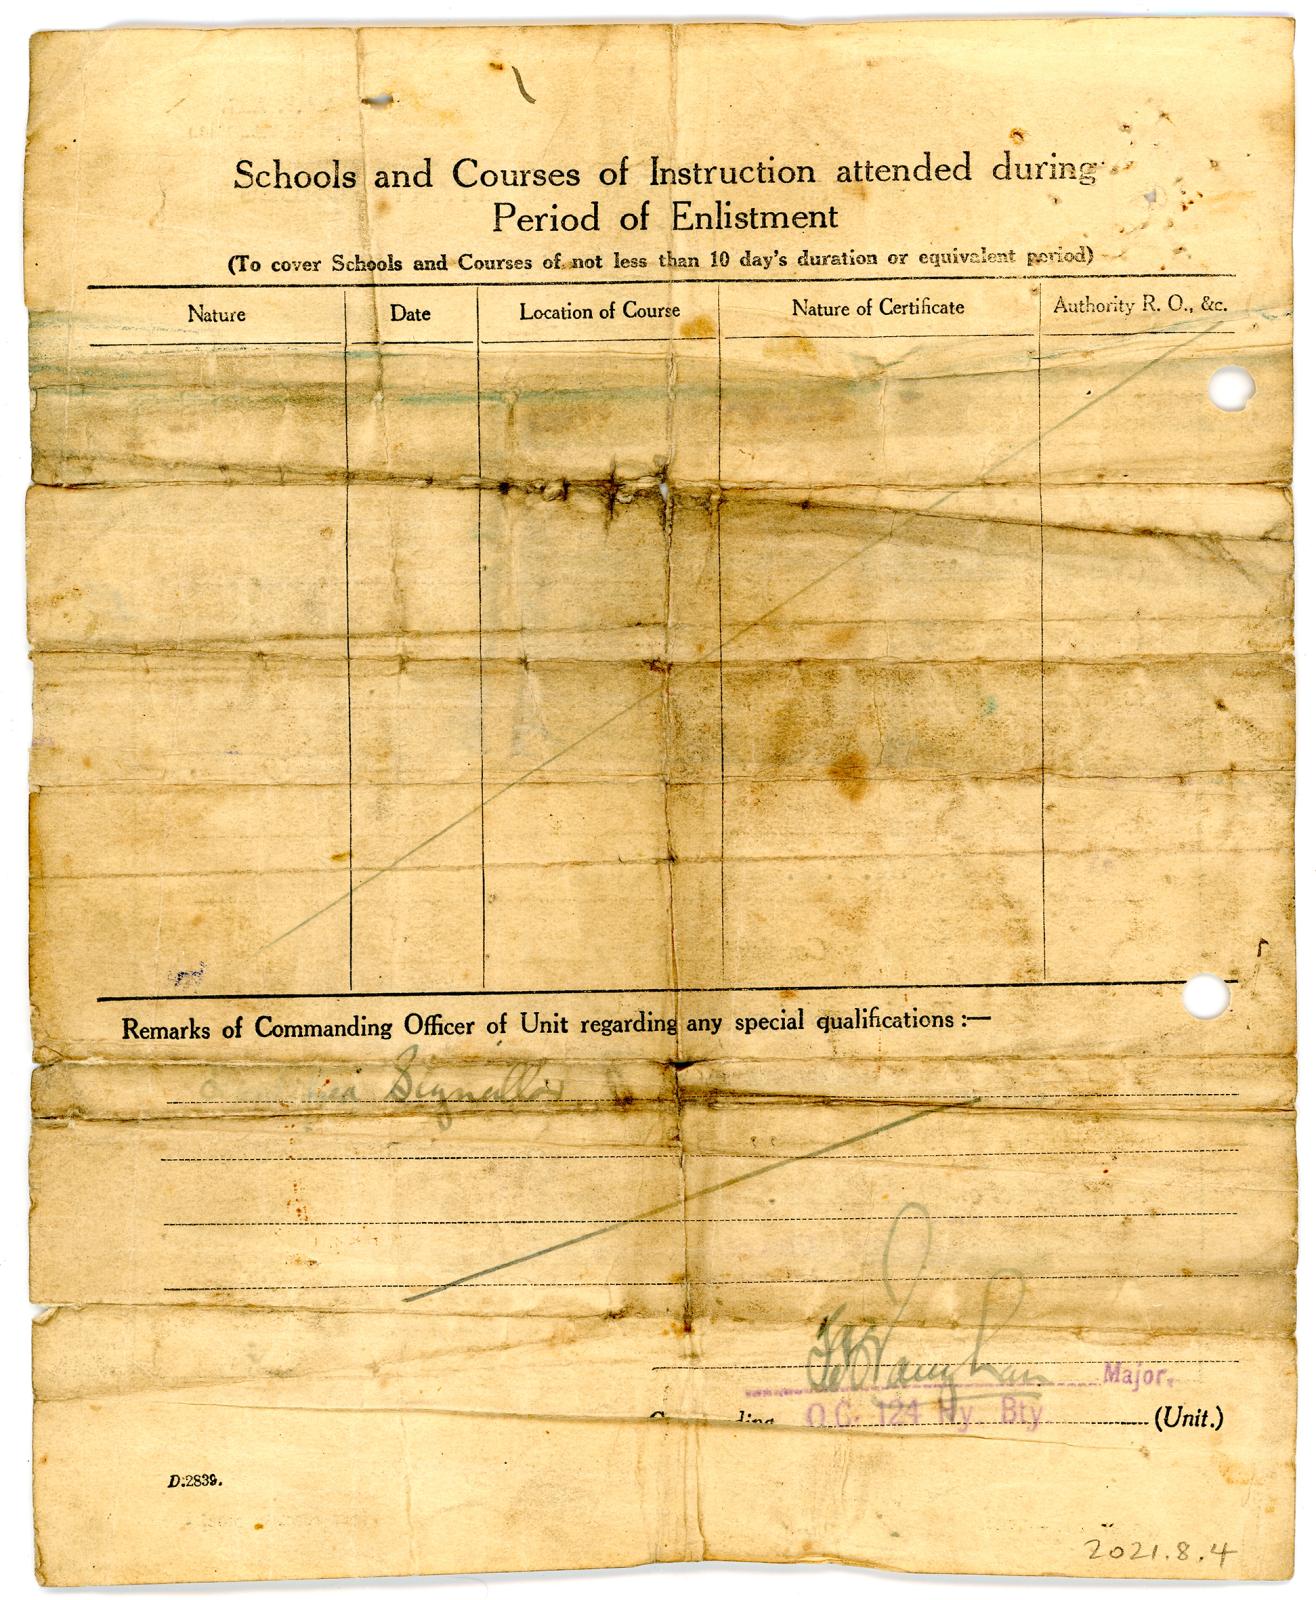 Schools and Courses of Instruction attended during
Period of Enlistment
(To cover Schools and Courses of not less than 10 day's duration or equivalent period)
Nature Date Location of Course Nature of Certificate Authority R. O., &c.
Remarks of Commanding Officer of Unit regarding any special qualifications :—
Signaller
Major,
O.C. 124 Hy. Bty.
(Unit.)
D.2839.
2021.8.4